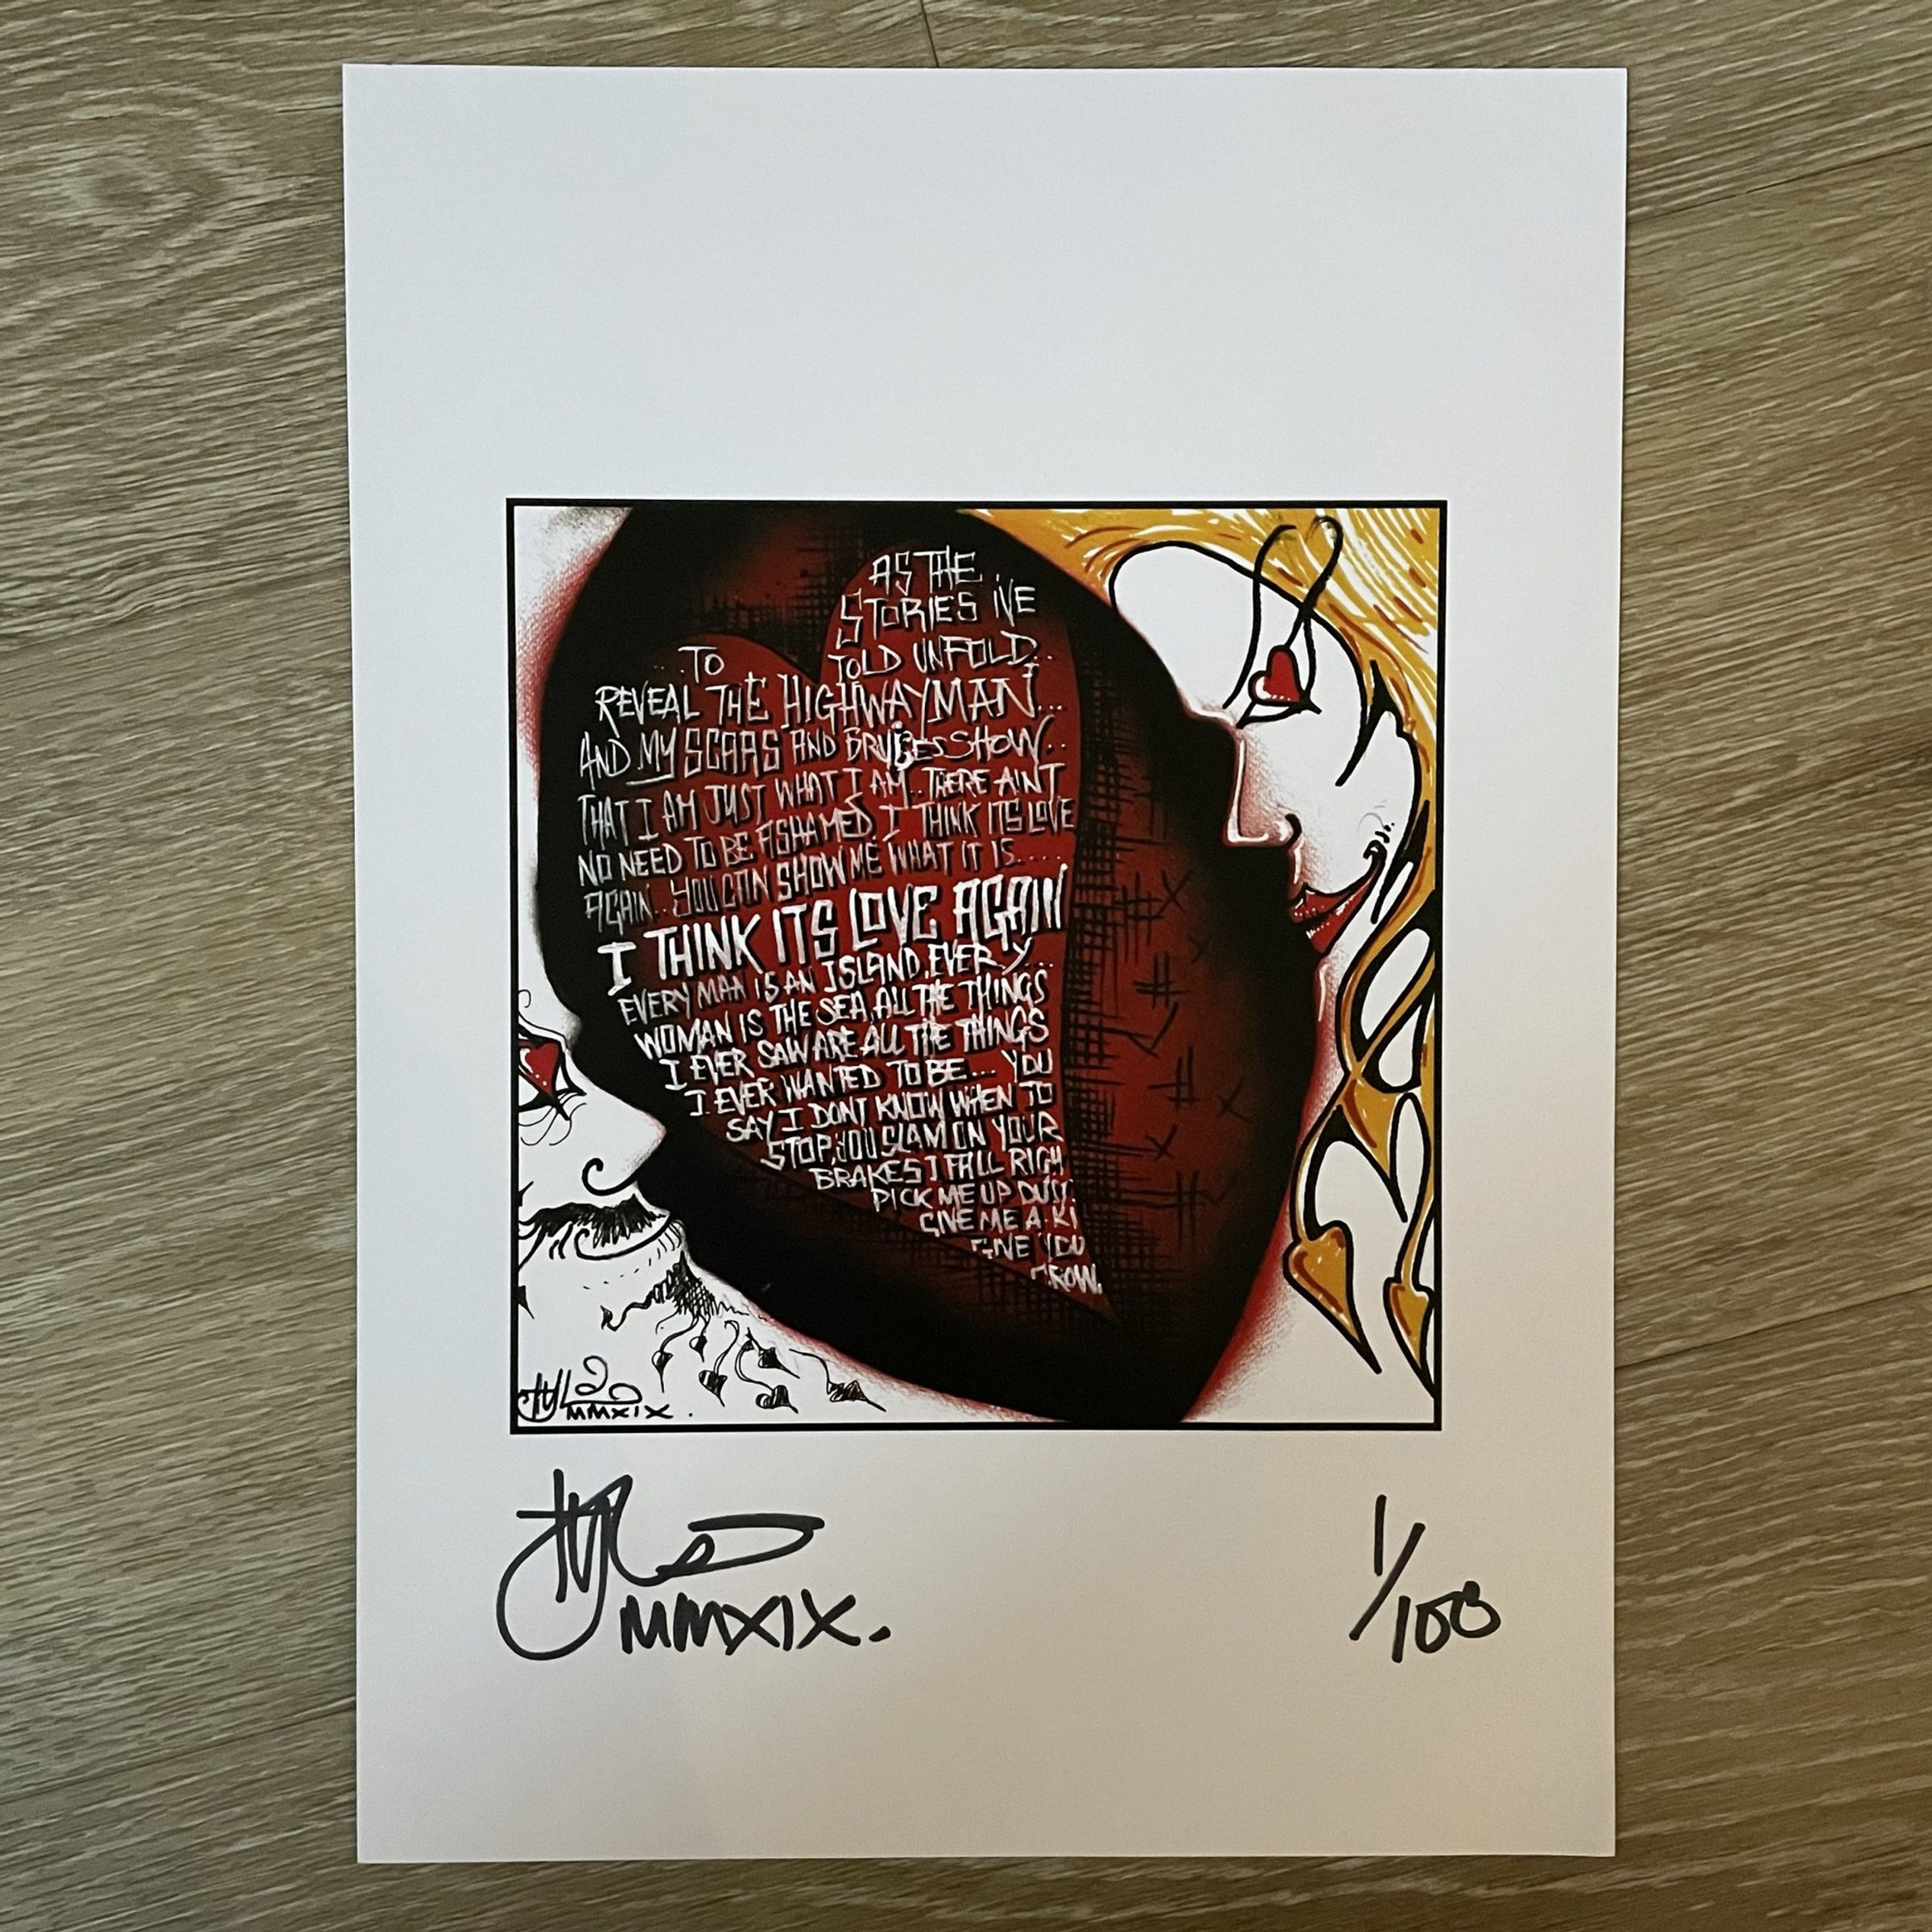 AS THE
STORIES I'VE
TOLD UNFOLD...
..TO
REVEAL THE HIGHWAYMAN...
AND MY SCARS AND BRUISES SHOW..
THAT I AM JUST WHAT I AM.. THERE AINT
NO NEED TO BE ASHAMED. I THINK ITS LOVE
AGAIN.. YOU CAN SHOW ME WHAT IT IS....
I THINK ITS LOVE AGAIN
EVERY MAN IS AN ISLAND, EVERY....
WOMAN IS THE SEA, ALL THE THINGS
I EVER SAW ARE ALL THE THINGS
I EVER WANTED TO BE... YOU
SAY I DONT KNOW WHEN TO
STOP, YOU SLAM ON YOUR
BRAKES I FALL RIGH
PICK ME UP DUS
GIVE ME A KI
GIVE YOU
ROW.
MMXIX.
MMXIX.
1/100